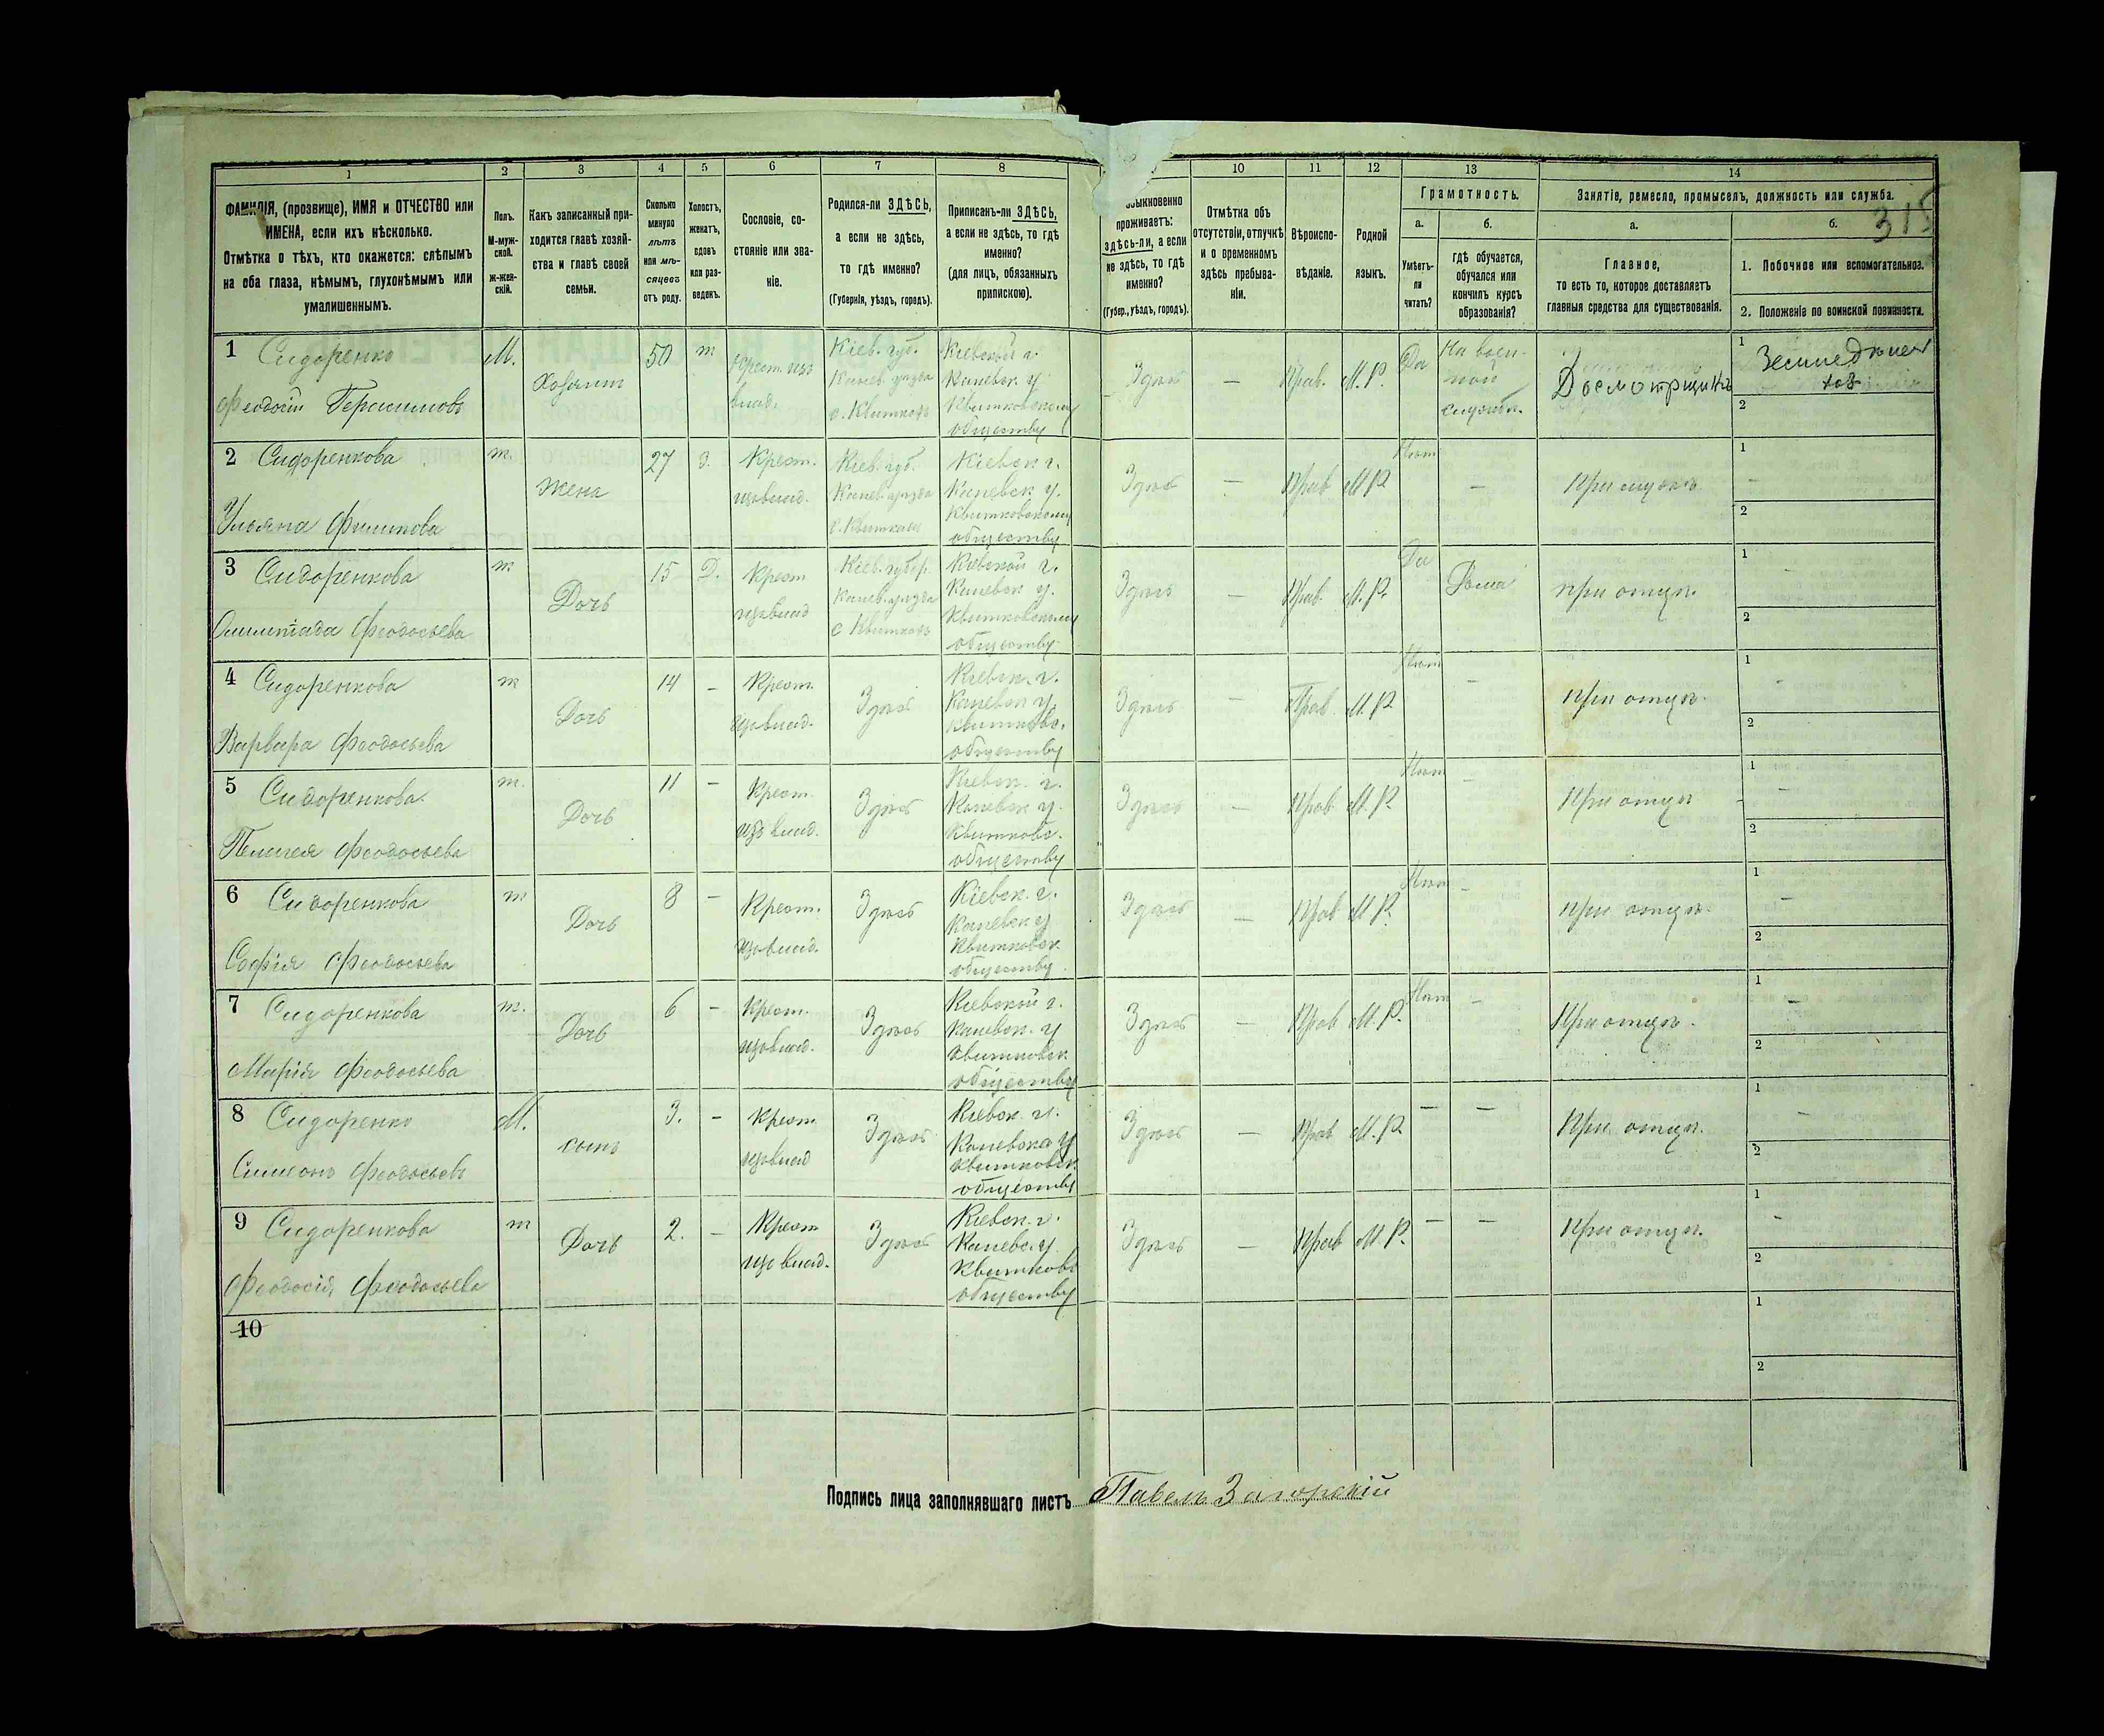 1
2
3
4
5
6
7
8
9
10
11
12
13
14
315
ФАМИЛІЯ, (прозвище), ИМЯ и ОТЧЕСТВО или
ИМЕНА, если ихъ нѣсколько.
Отмѣтка о тѣхъ, кто окажется: слѣпымъ
на оба глаза, нѣмымъ, глухонѣмымъ или
умалишеннымъ.
Полъ.
М-муж-
ской.
ж-жен-
скій.
Какъ записанный при-
ходится главѣ хозяй-
ства и главѣ своей
семьи.
Сколько
минуло
лѣтъ
или мѣ-
сяцевъ
отъ роду.
Холостъ,
женатъ,
вдовъ
или раз-
веденъ.
Сословіе, со-
стояніе или зва-
ніе.
Родился-ли ЗДѢСЬ,
а если не здѣсь,
то гдѣ именно?
(Губернія, уѣздъ, городъ).
Приписанъ-ли ЗДѢСЬ,
а если не здѣсь, то гдѣ
именно?
(для лицъ, обязанныхъ
припискою).
проживаетъ:
здѣсь-ли, а если
не здѣсь, то гдѣ
именно?
(Губер., уѣздъ, городъ).
Отмѣтка объ
отсутствіи, отлучкѣ
и о временномъ
здѣсь пребыва-
ніи.
Вѣроиспо-
вѣданіе.
Родной
языкъ.
Грамотность.
а.
Умѣетъ-
ли
читать?
б.
гдѣ обучается,
обучался или
кончилъ курсъ
образованія?
Занятіе, ремесло, промыселъ, должность или служба.
а.
Главное,
то есть то, которое доставляетъ
главныя средства для существованія.
б.
1. Побочное или вспомогательное.
2. Положеніе по воинской повинности.
1 Сидоренко
Феодосій Герасимовъ
М.
Хозяинъ
50
Крест. изъ
влад.
Кіев. губ.
Канев. уѣзда
с. Квитковъ
Кіевской г.
Каневск. у.
Квитковскому
обществу
Здѣсь
—
Прав.
М. Р.
Да
На воен-
ной
службѣ.
Досмотрщикъ
1
2
2 Сидоренкова
Ульяна Филипова
ж.
Жена
27
З.
Крест.
изъ влад.
Кіев. губ.
Канев. уѣзда
с. Квитковъ
Кіевск г.
Каневск у.
Квитковскому
обществу
Здѣсь
—
Прав
М Р
Нѣт
—
При мужѣ
1
—
2
3 Сидоренкова
Олимпіада Феодосьева
ж
Дочь
15
Д.
Крест
изъ влад
Кіев. губер.
Канев. уѣзда
с Квитковъ
Кіевской г.
Каневск у.
Квитковскому
обществу
Здѣсь
—
Прав.
М. Р.
Да
Дома
при отцѣ.
1
-
2
4 Сидоренкова
Варвара Феодосьева
ж
Дочь
14
-
Крест.
изъ влад.
Здѣсь
Кіевск. г.
Каневск у.
Квитковс.
обществу
Здѣсь
—
Прав
М. Р
Нѣт
-
при отцѣ.
1
-
2
5 Сидоренкова.
Пелагея Феодосьева
ж.
Дочь
11
-
Крест.
изъ влад.
Здѣсь
Кіевск. г.
Каневск у.
Квитковс.
обществу
Здѣсь
—
Прав
М. Р
Нѣт
-
При отцѣ
1
-
2
6 Сидоренкова
Софія Феодосьева
ж
Дочь
8
-
Крест.
изъ влад.
Здѣсь
Кіевск. г.
Каневск у
Квитковск.
обществу
Здѣсь
—
Прав
М. Р.
Нѣт
-
при отцѣ.
1
-
2
7 Сидоренкова
Марія Феодосьева
ж.
Дочь
6
-
Крест.
изъ влад.
Здѣсь
Кіевской г.
Каневск. у
Квитковск.
обществу
Здѣсь
—
Прав
М. Р.
Нѣт
-
При отцѣ.
1
-
2
8 Сидоренко
Симеонъ Феодосьевъ
М.
сынъ
3.
-
Крест
изъ влад
Здѣсь
Кіевск. г.
Каневска у
Квитковск.
обществу
Здѣсь
—
Прав
М. Р
—
—
При отцѣ.
1
-
2
9 Сидоренкова
Феодосія Феодосьева
ж
Дочь
2.
-
Крест
изъ влад.
Здѣсь
Кіевск. г.
Каневс. у
Квитковс
обществу
Здѣсь
—
Прав
М. Р.
—
—
При отцѣ.
1
-
2
10
1
2
Подпись лица заполнявшаго листъ Павелъ Загорскій